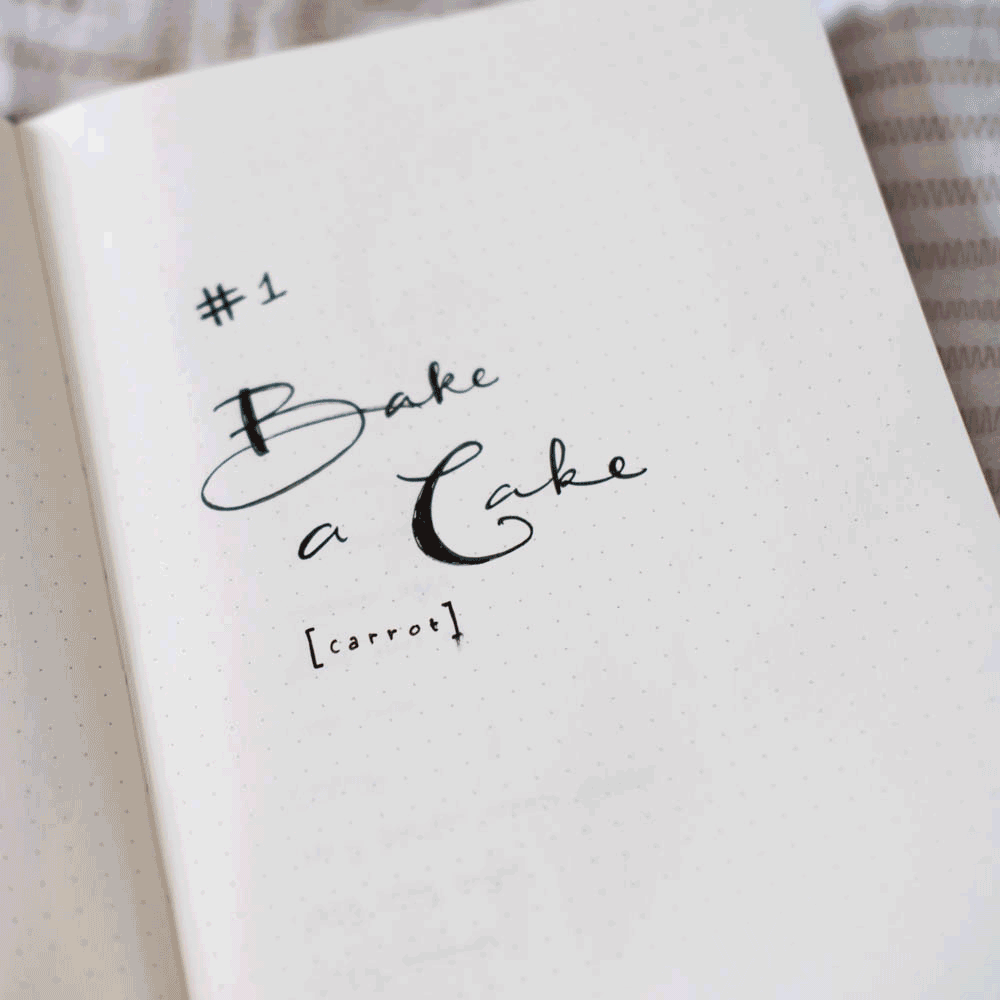 #1
Bake
a Cake
[carrot]